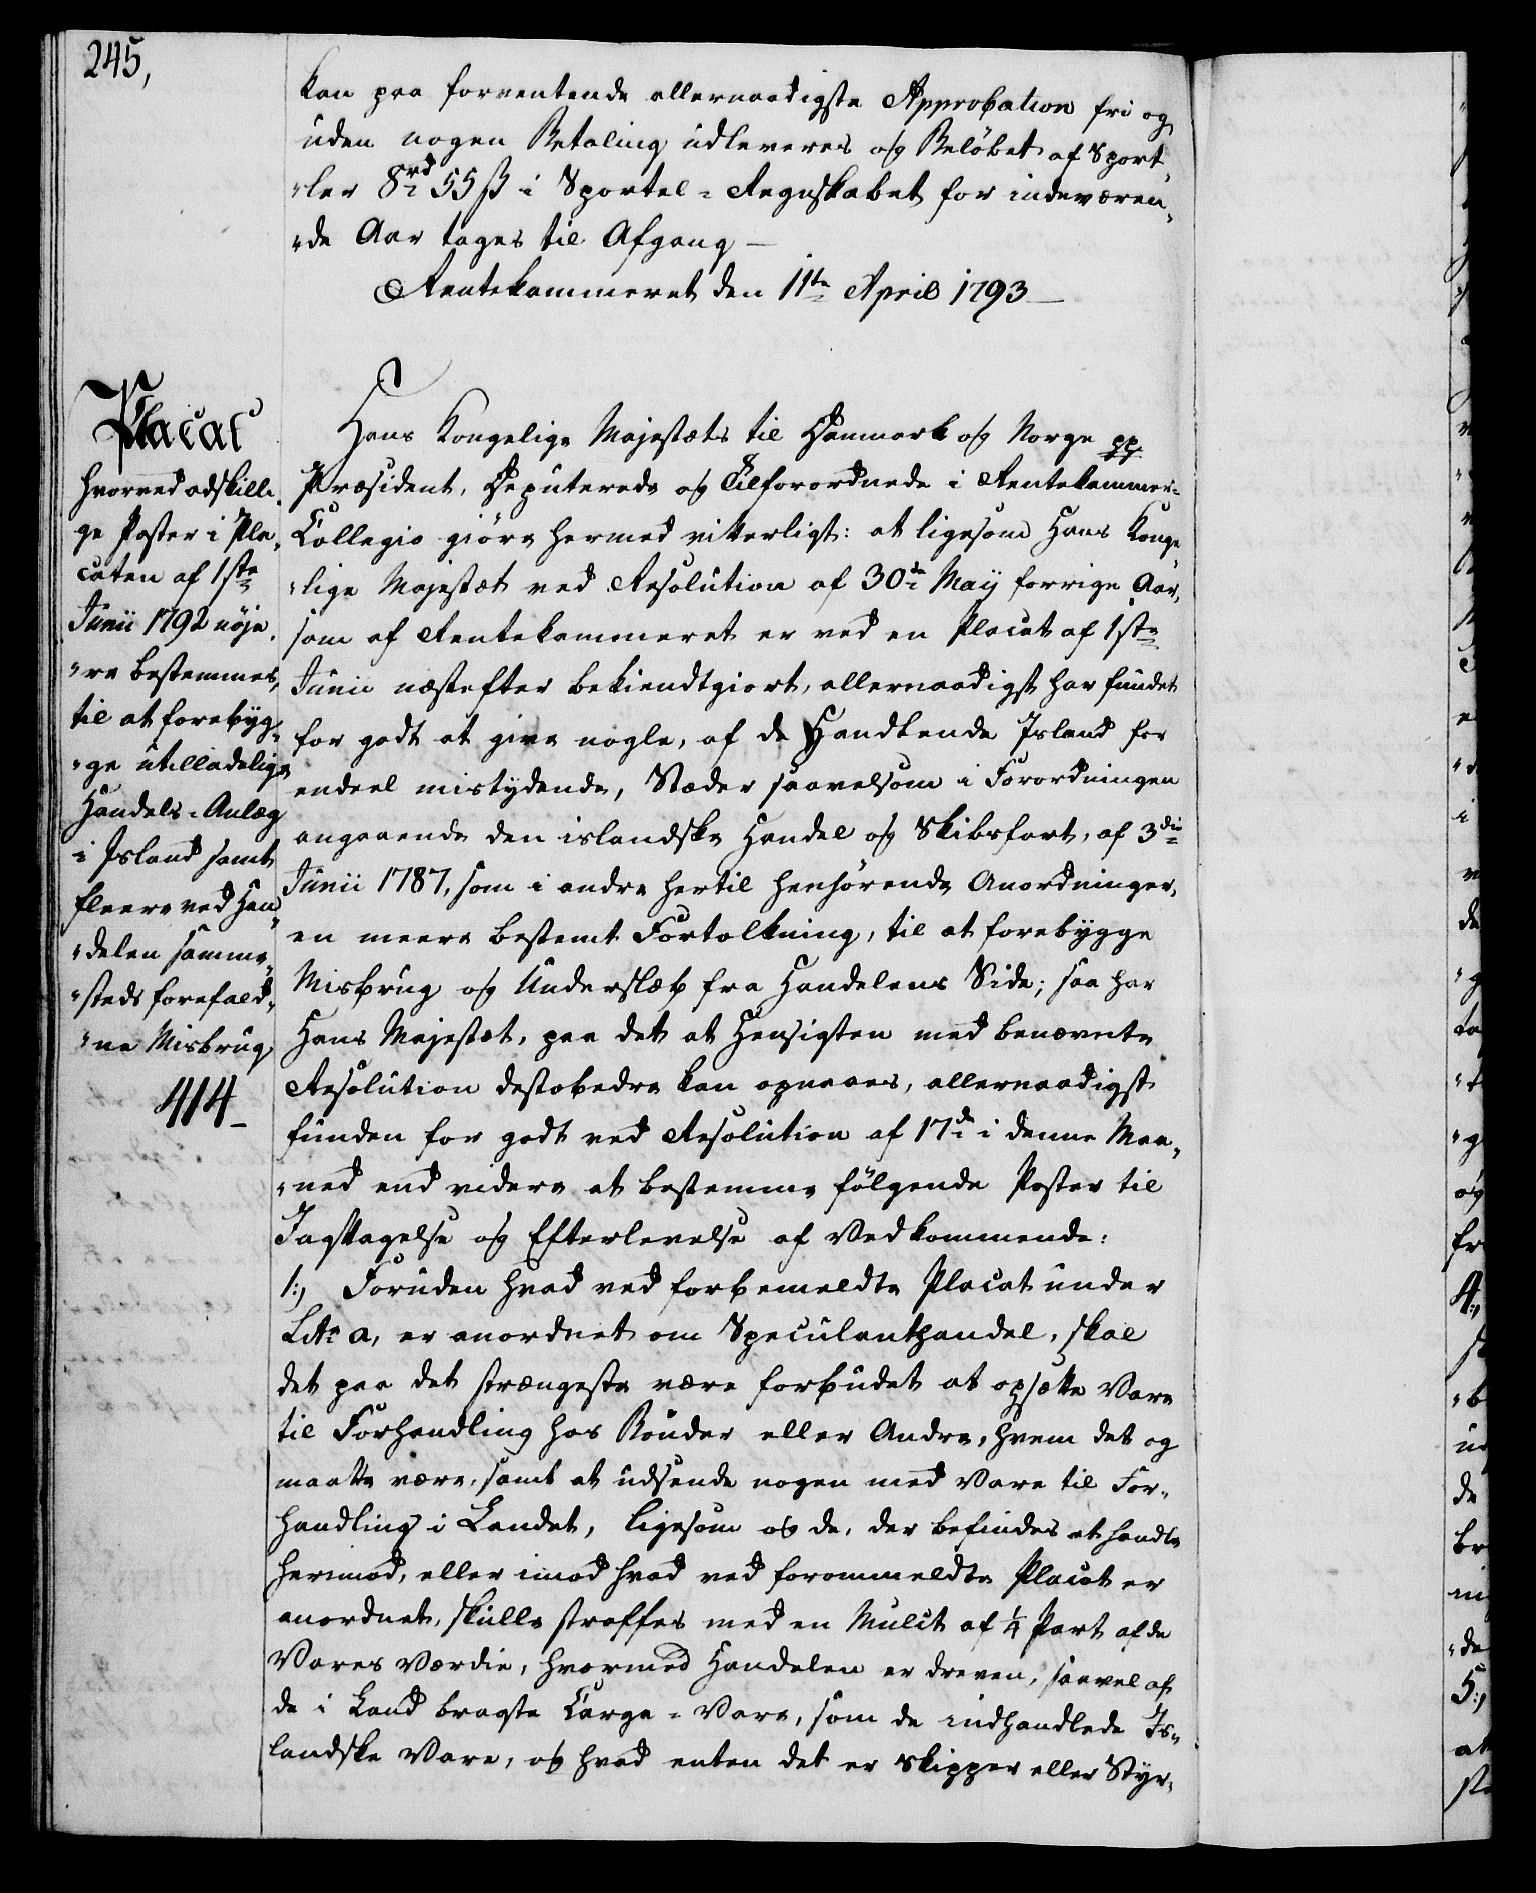 245,
kan paa forventende allernaadigste Approbation fri og
uden nogen Betaling udleveres og Beløbet af Sport,,
,,ler 8rd 55 ß i Sportel-Regnskabet for indeværen,,
,,de Aar tages til Afgang —
Rentekammeret den 11te April 1793 —
Placat
hvorved adskilli,,
ge Poster i Pla,,
caten af 1ste
Junii 1792 nöje,,
,,re bestemmes,
til at forebyg,,
,,ge utilladelige
Handels-Anlæg
i Island samt
fleere ved Han,,
,,delen samme,,
,,steds forefald,,
,,ne Misbrug
414_
Hans Kongelige Majestæts til Danmark og Norge pp
Præsident, Deputerede og Tilforordnede i Rentekammer-
Collegio giöre hermed vitterligt: at ligesom Hans Konge,,
,,lige Majestæt ved Resolution af 30de Maÿ forrige Aar,
som af Rentekammeret er ved en Placat af 1ste
Junii næstefter bekiendtgiort, allernaadigst har fundet
for godt at give nogle, af de Handlende Island for
endeel mistydende, Stæder saavelsom i Forordningen
angaaende den islandske Handel og Skibsfart, af 3die
Junii 1787, som i andre hertil henhörende Anordninger,
en meere bestemt Fortolkning, til at forebygge
Misbrug og Underslæb fra Handelens Side; saa har
Hans Majestæt, paa det at Hensigten med benævnte
Resolution destobedre kan opnaaes, allernaadigst
funden for godt ved Resolution af 17de i denne Maa,,
,,ned end videre at bestemme fölgende Poster til
Iagttagelse og Efterlevelse af Vedkommende:
1:, Foruden hvad ved forbemeldte Placat under
Litr a, er anordnet om Speculanthandel, skal
det paa det strængeste være forbudet at opsætte Vare
til Forhandling hos Bönder eller Andre, hvem det og
maatte være, samt at udsende nogen med Vare til For,,
handling i Landet, ligesom og de, der befindes at handle
herimod, eller imod hvad ved forommeldte Placat er
anordnet, skulle straffes med en Mulct af 1/4 Part af de
Vares Værdie, hvormed Handelen er dreven, saavel af
de i Land bragte Cargo-Vare, som de indhandlede Is,,
landske Vare, og hvad enten det er Skipper eller Styr,,